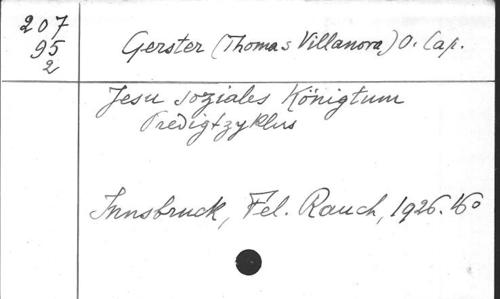 207
95
2
Gerster (Thomas Villanova) O. Cap.
Jesu soziales Königtum
Predigtzyklus
Innsbruck, Fel. Rauch, 1926. 16°